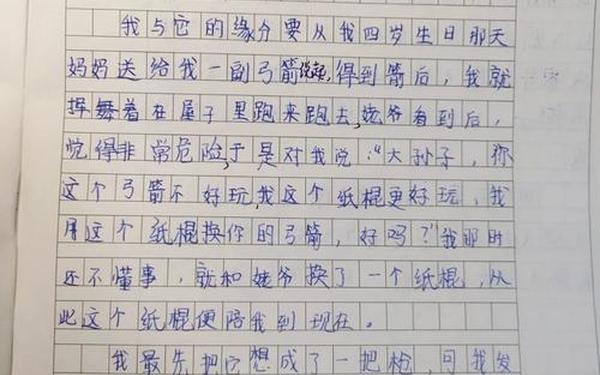 我与它的缘分要从我四岁生日那天
妈妈送给我一副弓箭说起,得到箭后,我就
挥舞着在屋子里跑来跑去,姥爷看到后,
觉得非常危险,于是对我说:“大孙子,你
这个弓箭不好玩,我这个纸棍更好玩,我
用这个纸棍换你的弓箭,好吗?”我那时
还不懂事,就和姥爷换了一个纸棍,从
此这个纸棍便陪我到现在。
我最先把它想成了一把枪,可我发